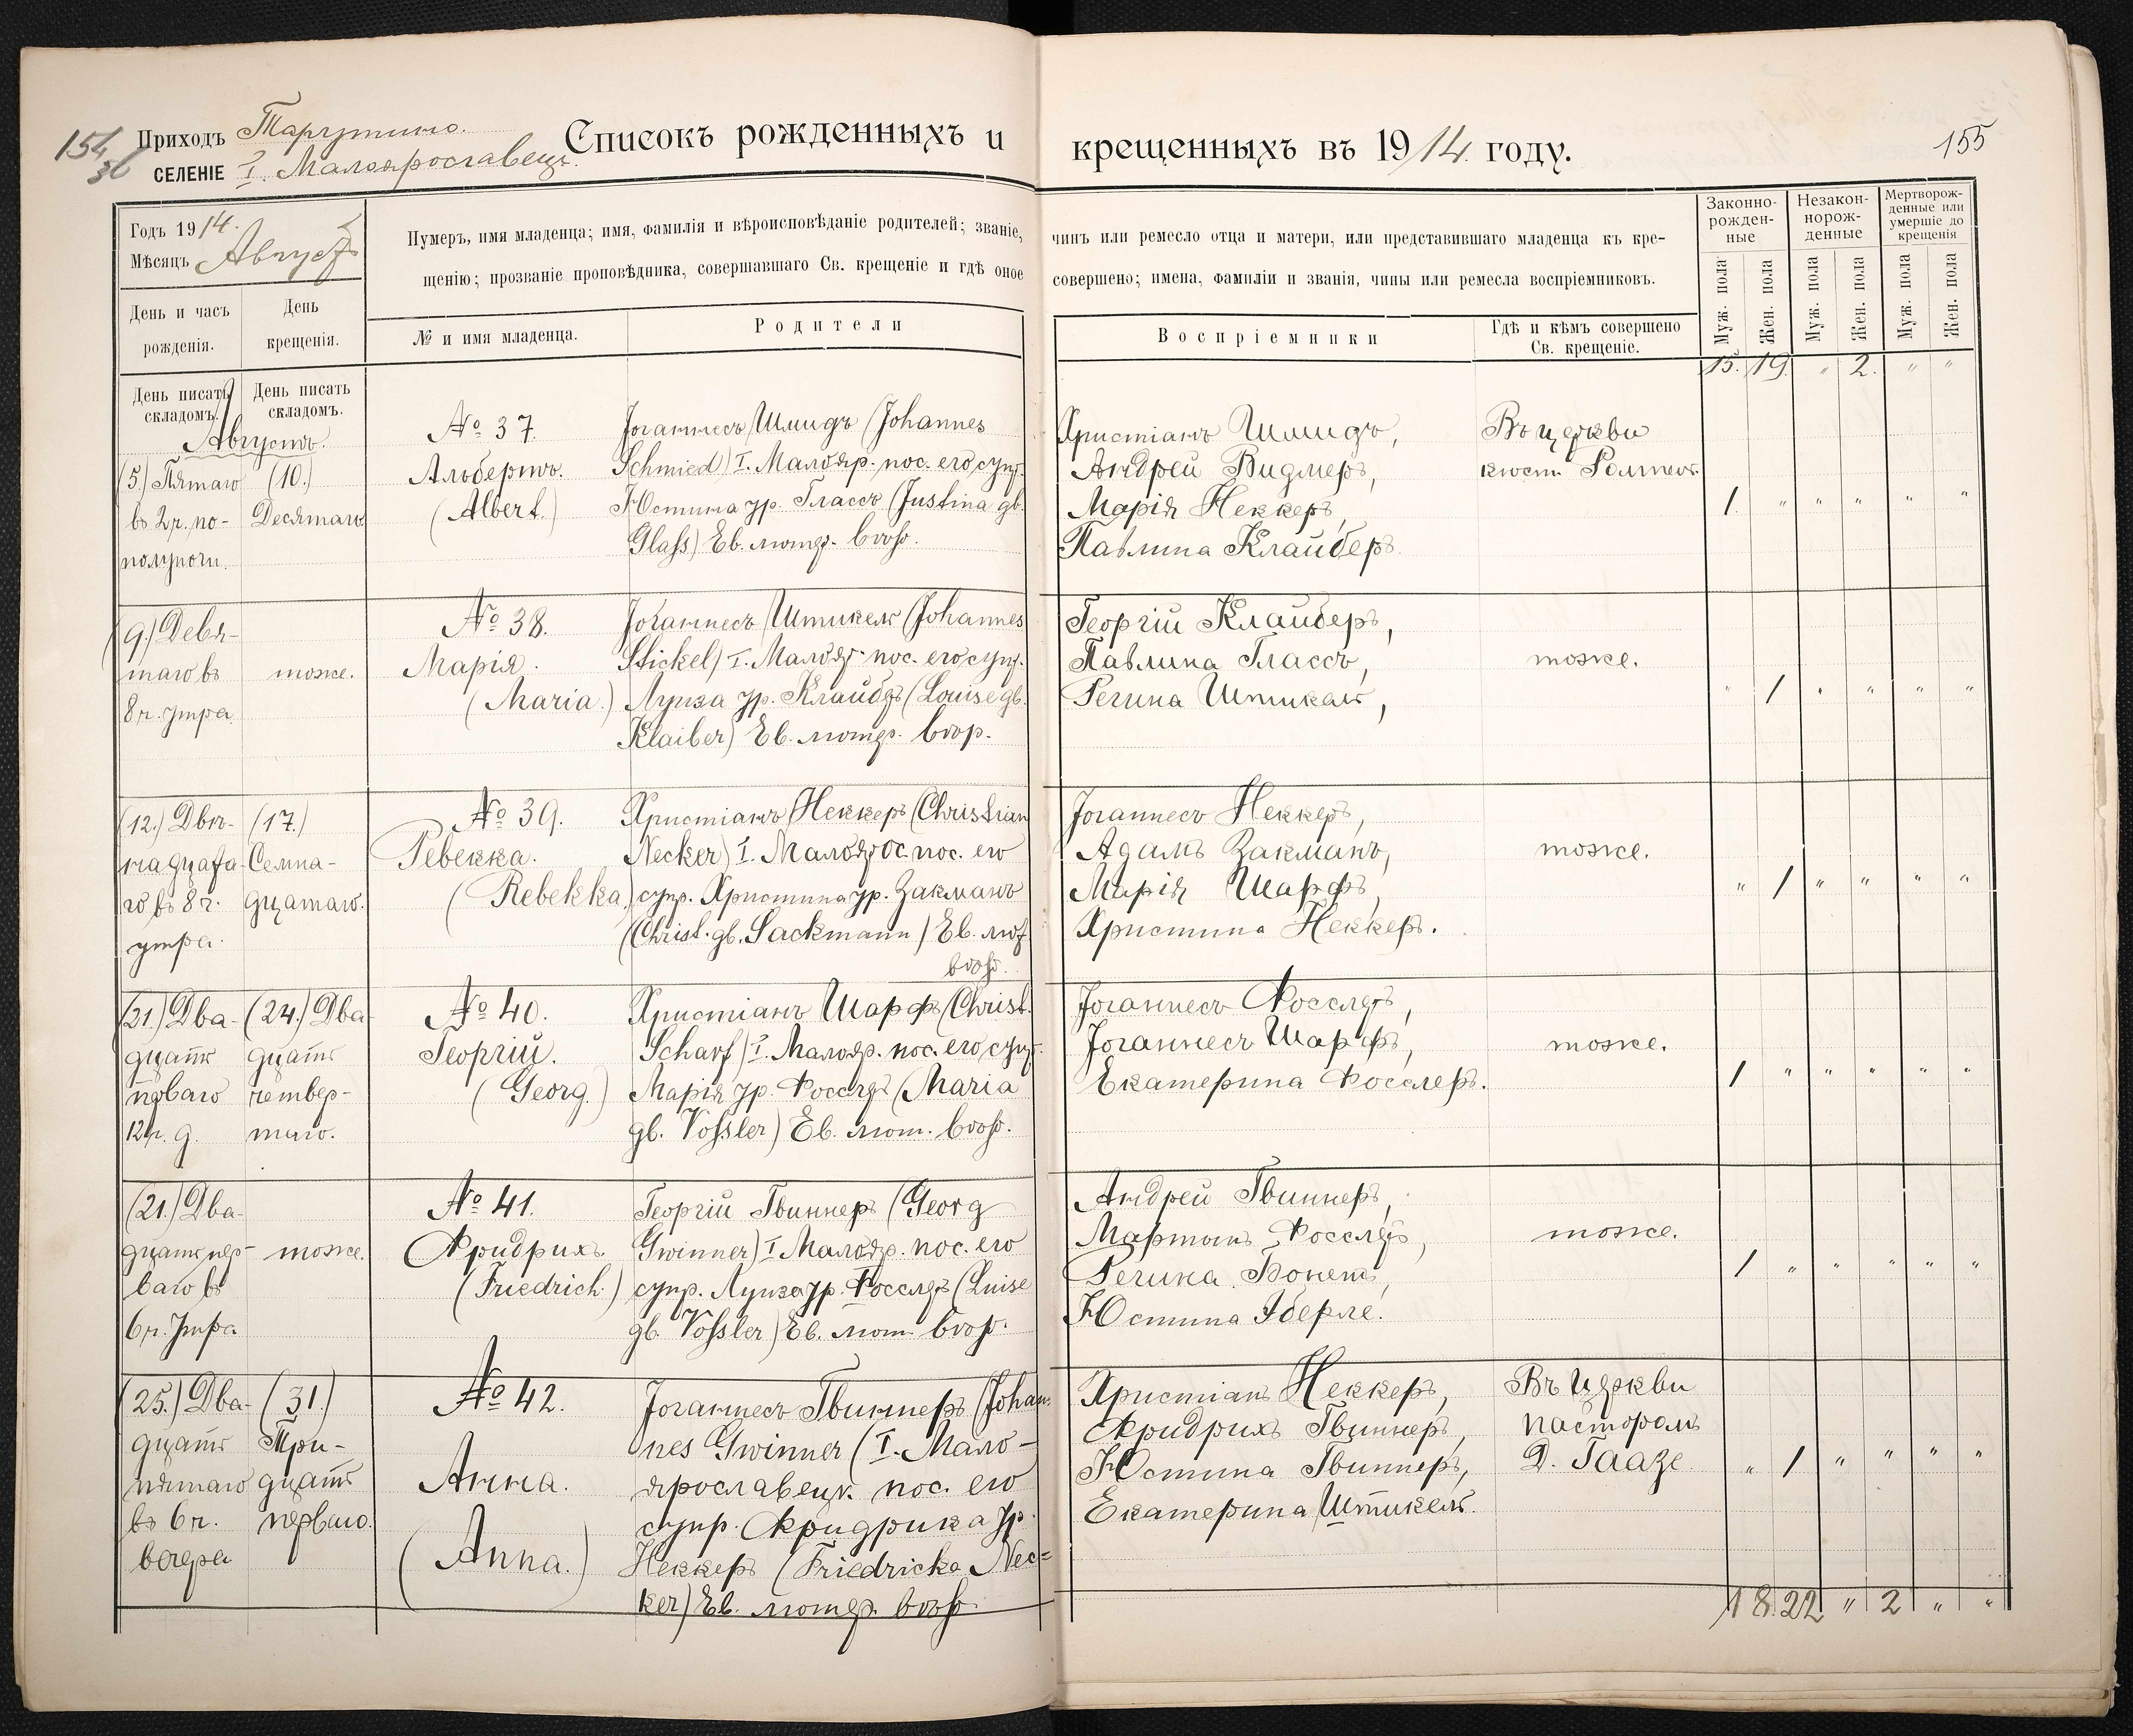 154
36
Приходъ Тарутино.
СЕЛЕНІЕ I. Малоярославецъ.
Списокъ рожденныхъ и крещенныхъ въ 1914 году.
155
Годъ 1914.
Мѣсяцъ Августъ
Нумеръ, имя младенца; имя, фамилія и вѣроисповѣданіе родителей; званіе, чинъ или ремесло отца и матери, или представившаго младенца къ кре-
щенію; прозваніе проповѣдника, совершавшаго Св. крещеніе и гдѣ оное совершено; имена, фамиліи и званія, чины или ремесла воспріемниковъ.
Законно-
рожден-
ные
Незакон-
норож-
денные
Мертворож-
денные или
умершіе до
крещенія
День и часъ
рожденія.
День
крещенія.
№ и имя младенца.
Родители
Воспріемники
Гдѣ и кѣмъ совершено
Св. крещеніе.
Муж. пола
Жен. пола
Муж. пола
Жен. пола
Муж. пола
Жен. пола
15. 19. " 2. " "
День писать
складомъ.
День писать
складомъ.
Августъ.
(5.) Пятаго
въ 2 ч. по-
полуночи.
(10.)
Десятаго
№ 37.
Альбертъ.
(Albert.)
Іоганнесъ Шмидъ (Johannes
Schmied) I. Малояр. пос. его супр.
Юстина ур. Глассъ (Justina gb.
Glaß) Ев. лютер. вѣр.
Христіанъ Шмидъ,
Андрей Видмеръ,
Марія Неккеръ,
Павлина Клайберъ.
Въ церкви
1. " " " " "
(9.) Девя-
таго въ
8 ч. утра
тоже.
№ 38.
Марія.
(Maria.)
Іоганнесъ Штикель (Johannes
Stickel) I. Малояр. пос. его супр.
Луиза ур. Клайберъ (Louise gb.
Klaiber) Ев. лютер. вѣр.
Георгій Клайберъ,
Павлина Глассъ,
Регина Штикель,
тоже.
" 1 " " " "
(12.) Двѣ-
надцата-
го въ 8 ч.
утра.
(17.)
Семна-
дцатаго.
№ 39.
Ревекка.
(Rebekka)
Христіанъ Неккеръ (Christian
Necker) I. Малояросл. пос. его
супр. Христина ур. Закманъ
(Christ. gb. Sackmann) Ев. лют.
вѣр.
Іоганнесъ Неккеръ,
Адамъ Закманъ,
Марія Шарфъ,
Христина Неккеръ.
тоже.
" 1 " " " "
(21.) Два-
дцать
перваго
12 ч. д.
(24.) Два-
дцать
четвер-
таго.
№ 40.
Георгій.
(Georg.)
Христіанъ Шарфъ (Christ.
Scharf) I. Малояр. пос. его супр.
Марія ур. Фосслеръ (Maria
gb. Voßler) Ев. лют. вѣр.
Іоганнесъ Фосслеръ,
Іоганнесъ Шарфъ,
Екатерина Фосслеръ.
тоже.
1 " " " " "
(21.) Два-
дцать пер-
ваго въ
6 ч. утра
тоже.
№ 41.
Фридрихъ.
(Friedrich.)
Георгій Гвиннеръ (Georg
Gwinner) I Малояр. пос. его
супр. Луиза ур. Фосслеръ (Luise
gb. Voßler) Ев. лют. вѣр.
Андрей Гвиннеръ,
Мартинъ Фосслеръ,
Регина Бонетъ,
Юстина Эберле.
тоже.
1 " " " " "
(25.) Два-
дцать
пятаго
въ 6 ч.
вечера
(31.)
Три-
дцать
перваго.
№ 42.
Анна.
(Anna.)
Іоганнесъ Гвиннеръ (Johan-
nes Gwinner (I. Мало-
ярославецк. пос. его
супр. Фридрика ур.
Неккеръ (Friedricka Nec-
ker) Ев. лютер. вѣр.
Христіанъ Неккеръ,
Фридрихъ Гвиннеръ,
Юстина Гвиннеръ,
Екатерина Штикель.
Въ церкви
пасторомъ
Д. Гаазе
" 1 " " " "
18. 22 " 2 " "